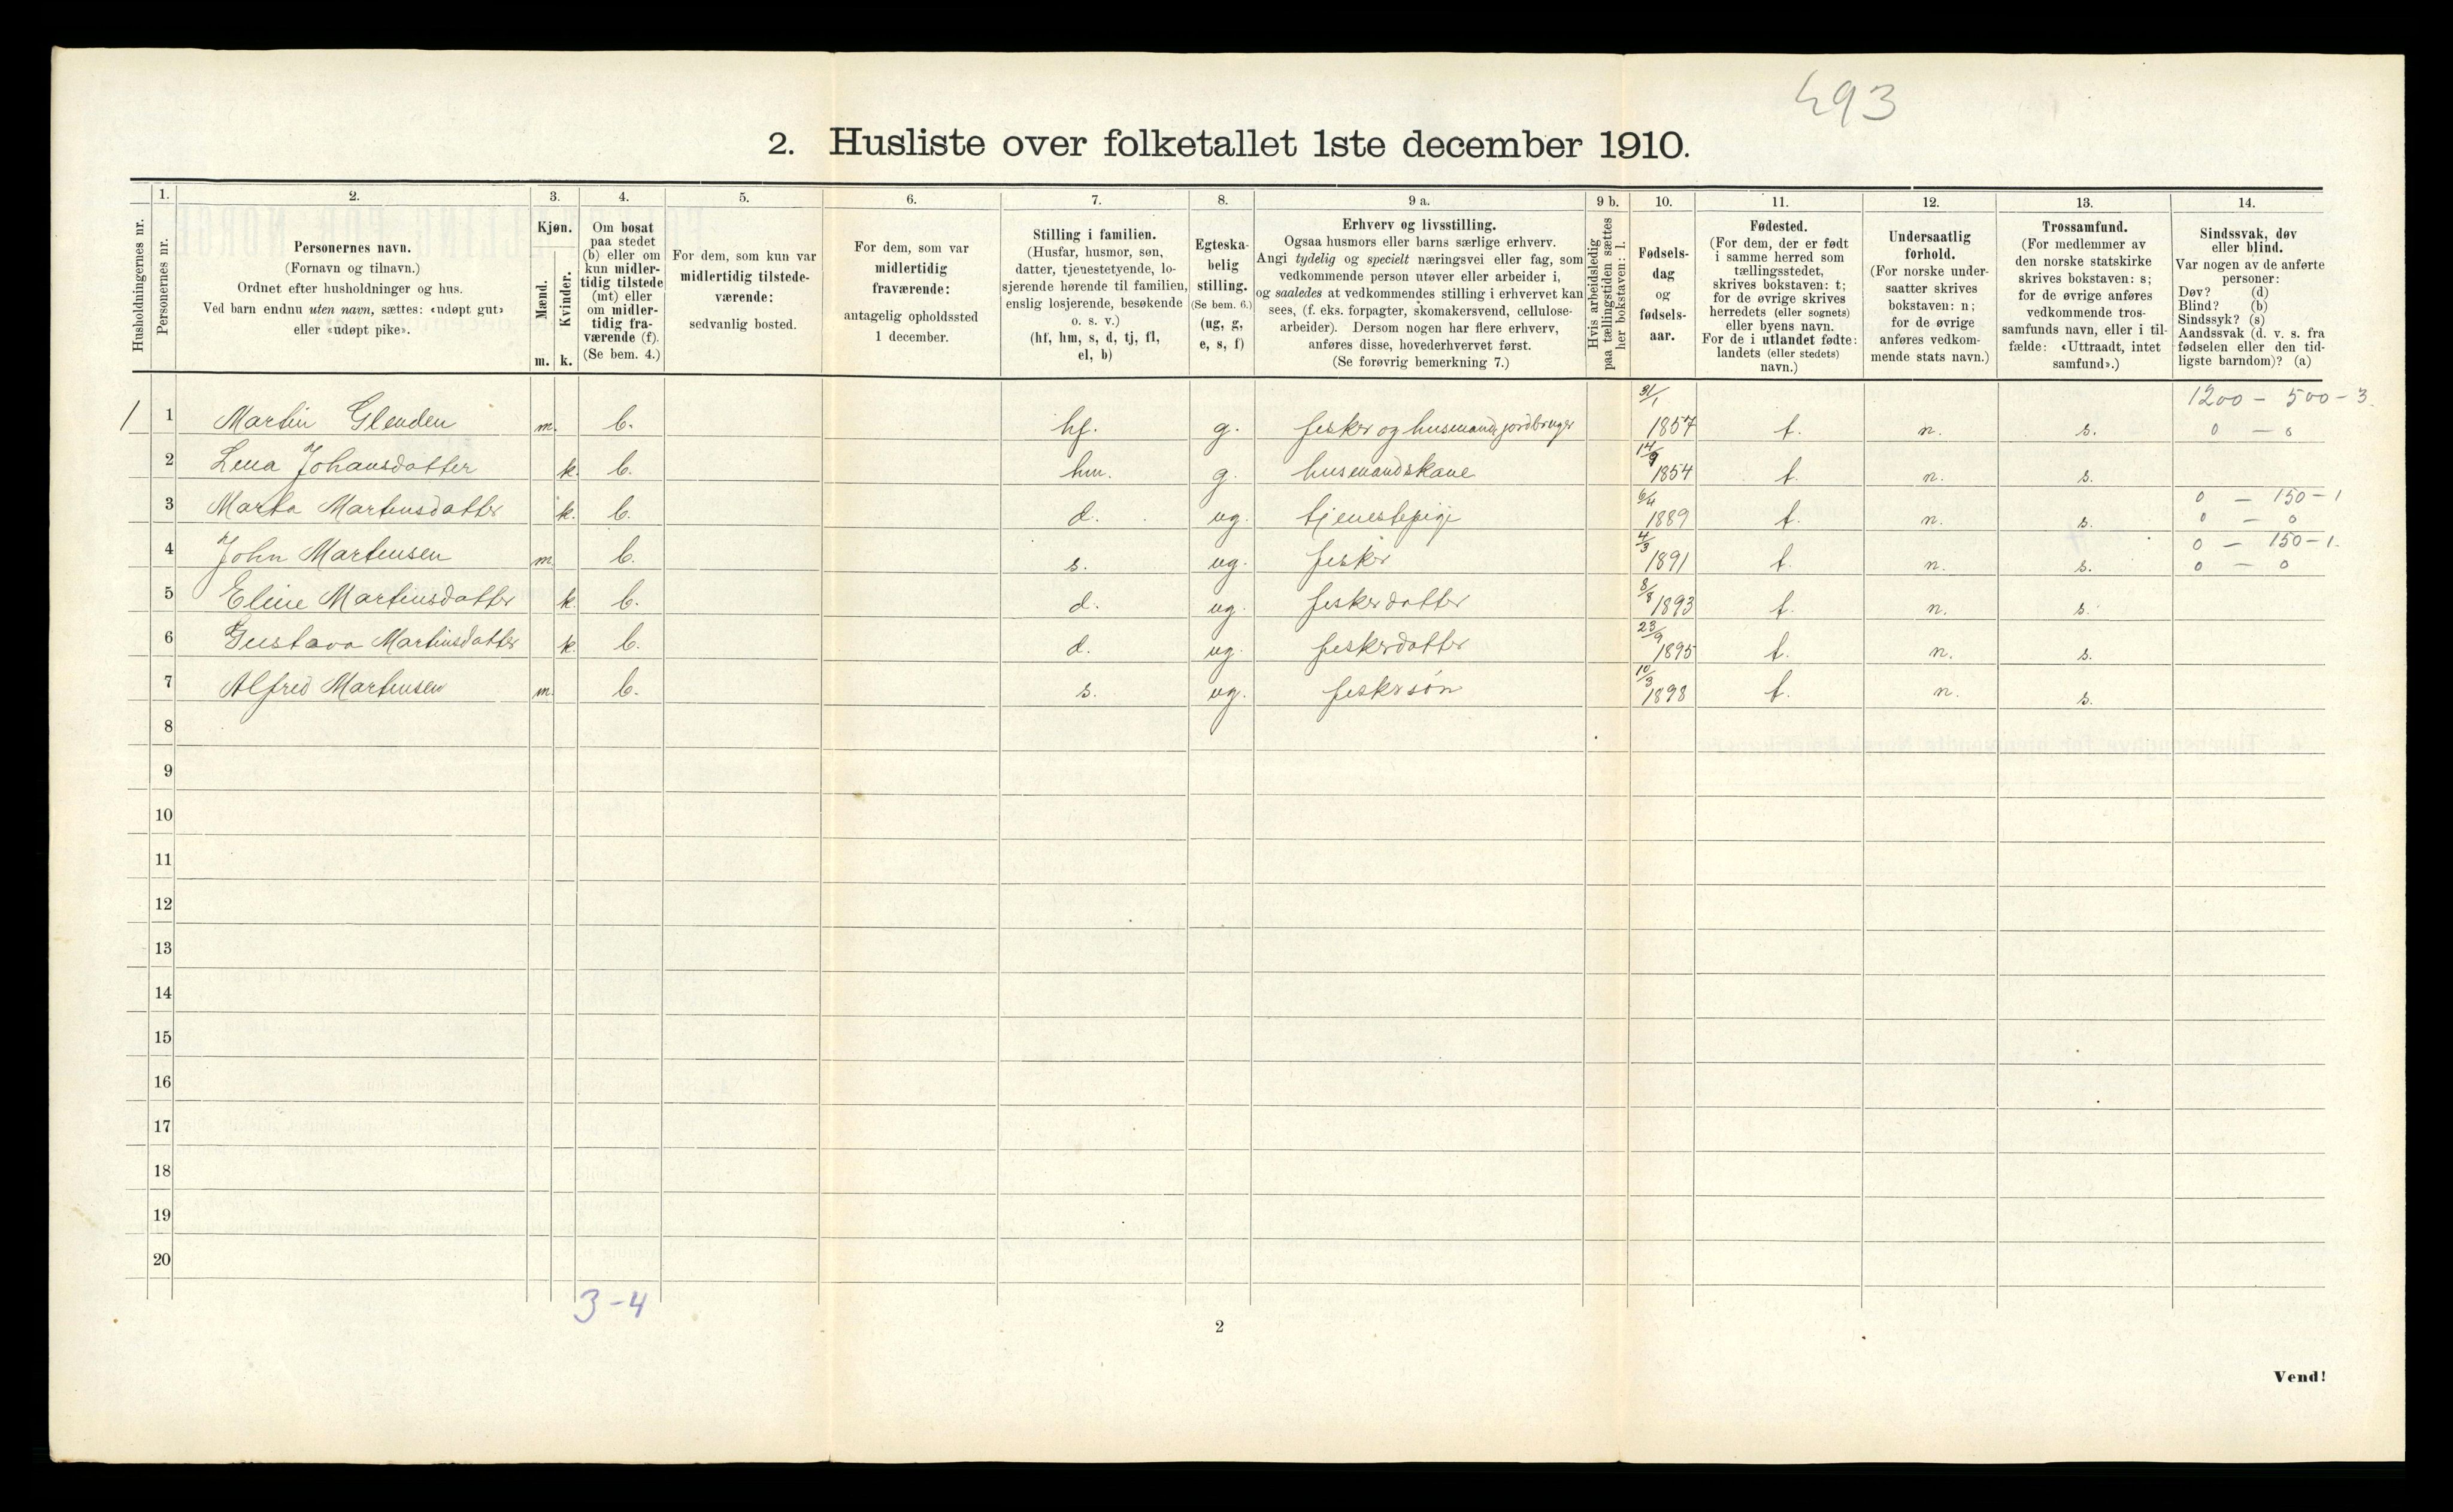 493
2. Husliste over folketallet 1ste december 1910.
Husholdningernes nr.
1.
Personernes nr.
2.
Personernes navn.
(Fornavn og tilnavn.)
Ordnet efter husholdninger og hus.
Ved barn endnu uten navn, sættes: «udøpt gut»
eller «udøpt pike».
3.
Kjøn.
Mænd.
Kvinder.
m. k.
4.
Om bosat
paa stedet
(b) eller om
kun midler-
tidig tilstede
(mt) eller
om midler-
tidig fra-
værende (f).
(Se bem. 4.)
5.
For dem, som kun var
midlertidig tilstede-
værende:
sedvanlig bosted.
6.
For dem, som var
midlertidig
fraværende:
antagelig opholdssted
1 december.
7.
Stilling i familien.
(Husfar, husmor, søn,
datter, tjenestetyende, lo-
sjerende hørende til familien,
enslig losjerende, besøkende
o. s. v.)
(hf, hm, s, d, tj, fl,
el, b)
8.
Egteska-
belig
stilling.
(Se bem. 6.)
(ug, g,
e, s, f)
9 a.
Erhverv og livsstilling.
Ogsaa husmors eller barns særlige erhverv.
Angi tydelig og specielt næringsvei eller fag, som
vedkommende person utøver eller arbeider i,
og saaledes at vedkommendes stilling i erhvervet kan
sees, (f. eks. forpagter, skomakersvend, cellulose-
arbeider). Dersom nogen har flere erhverv,
anføres disse, hovederhvervet først.
(Se forøvrig bemerkning 7.)
9 b.
Hvis arbeidsledig
paa tællingstiden sættes
her bokstaven: l.
10.
Fødsels-
dag
og
fødsels-
aar.
11.
Fødested.
(For dem, der er født
i samme herred som
tællingsstedet,
skrives bokstaven: t;
for de øvrige skrives
herredets (eller sognets)
eller byens navn.
For de i utlandet fødte:
landets (eller stedets)
navn.)
12.
Undersaatlig
forhold.
(For norske under-
saatter skrives
bokstaven: n;
for de øvrige
anføres vedkom-
mende stats navn.)
13.
Trossamfund.
(For medlemmer av
den norske statskirke
skrives bokstaven: s;
for de øvrige anføres
vedkommende tros-
samfunds navn, eller i til-
fælde: «Uttraadt, intet
samfund».)
14.
Sindssvak, døv
eller blind.
Var nogen av de anførte
personer:
Døv? (d)
Blind? (b)
Sindssyk? (s)
Aandssvak (d. v. s. fra
fødselen eller den tid-
ligste barndom)? (a)
1200 - 500 - 3
1 1 Martin Glenden m. b. hf. g. fesker og husmand, jordbruger 31/1 1857 t. n. s. 0 - 0
2 Lena Johansdatter k. b. hm. g. husmandskone 14/9 1854 t. n. s.
0 - 150 - 1
3 Marta Martinsdatter k. b. d. ug. tjenestepige 6/4 1889 t. n. s. 0 - 0
0 - 150 - 1.
4 John Martinsen m b. s. ug. fesker 4/3 1891 t. n. s. 0 - 0
5 Eline Martinsdatter k. b. d. ug. feskerdatter 8/8 1893 t. n. s.
6 Gustava Martinsdatter k. b. d. ug. feskerdatter 23/9 1895 t. n. s.
7 Alfred Martinsen m. b. s. ug. feskersön 10/3 1898 t. n. s.
8
9
10
11
12
13
14
15
16
17
18
19
20
3-4
2
Vend!